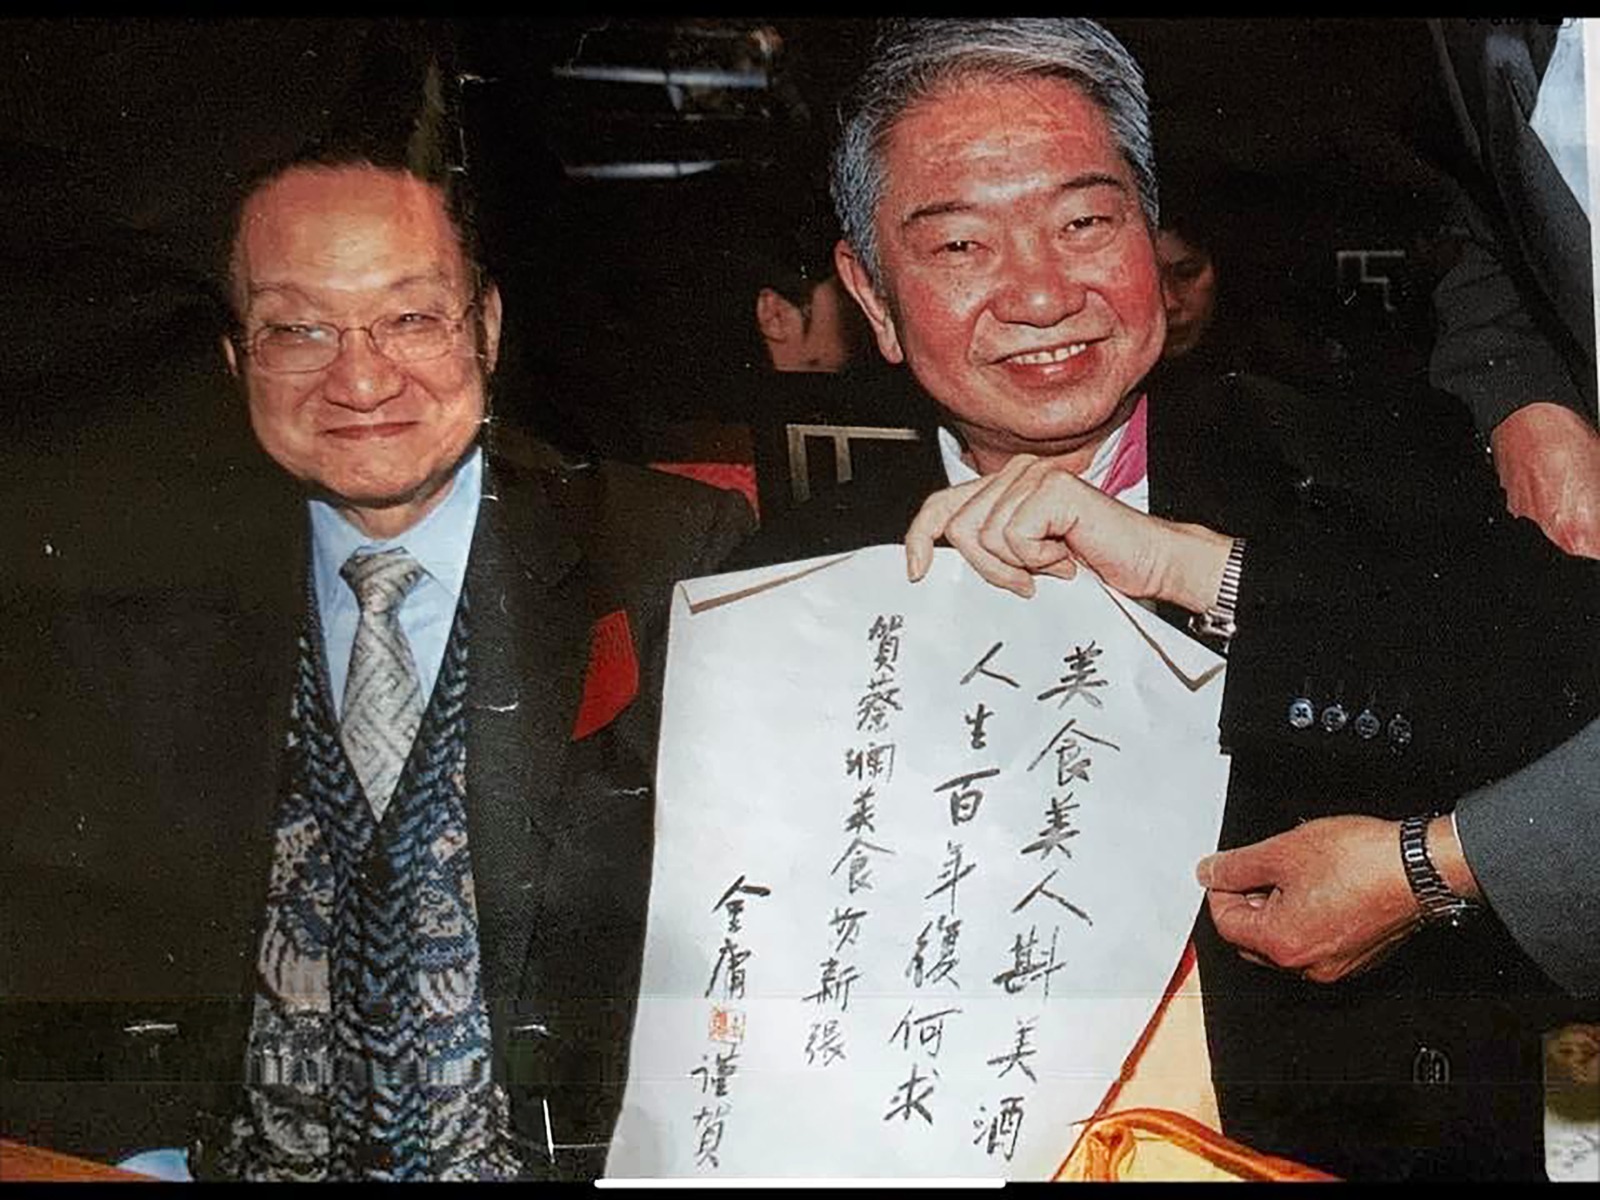 美食美人斟美酒
人生百年復何求
賀蔡瀾美食坊新張
金庸
謹賀